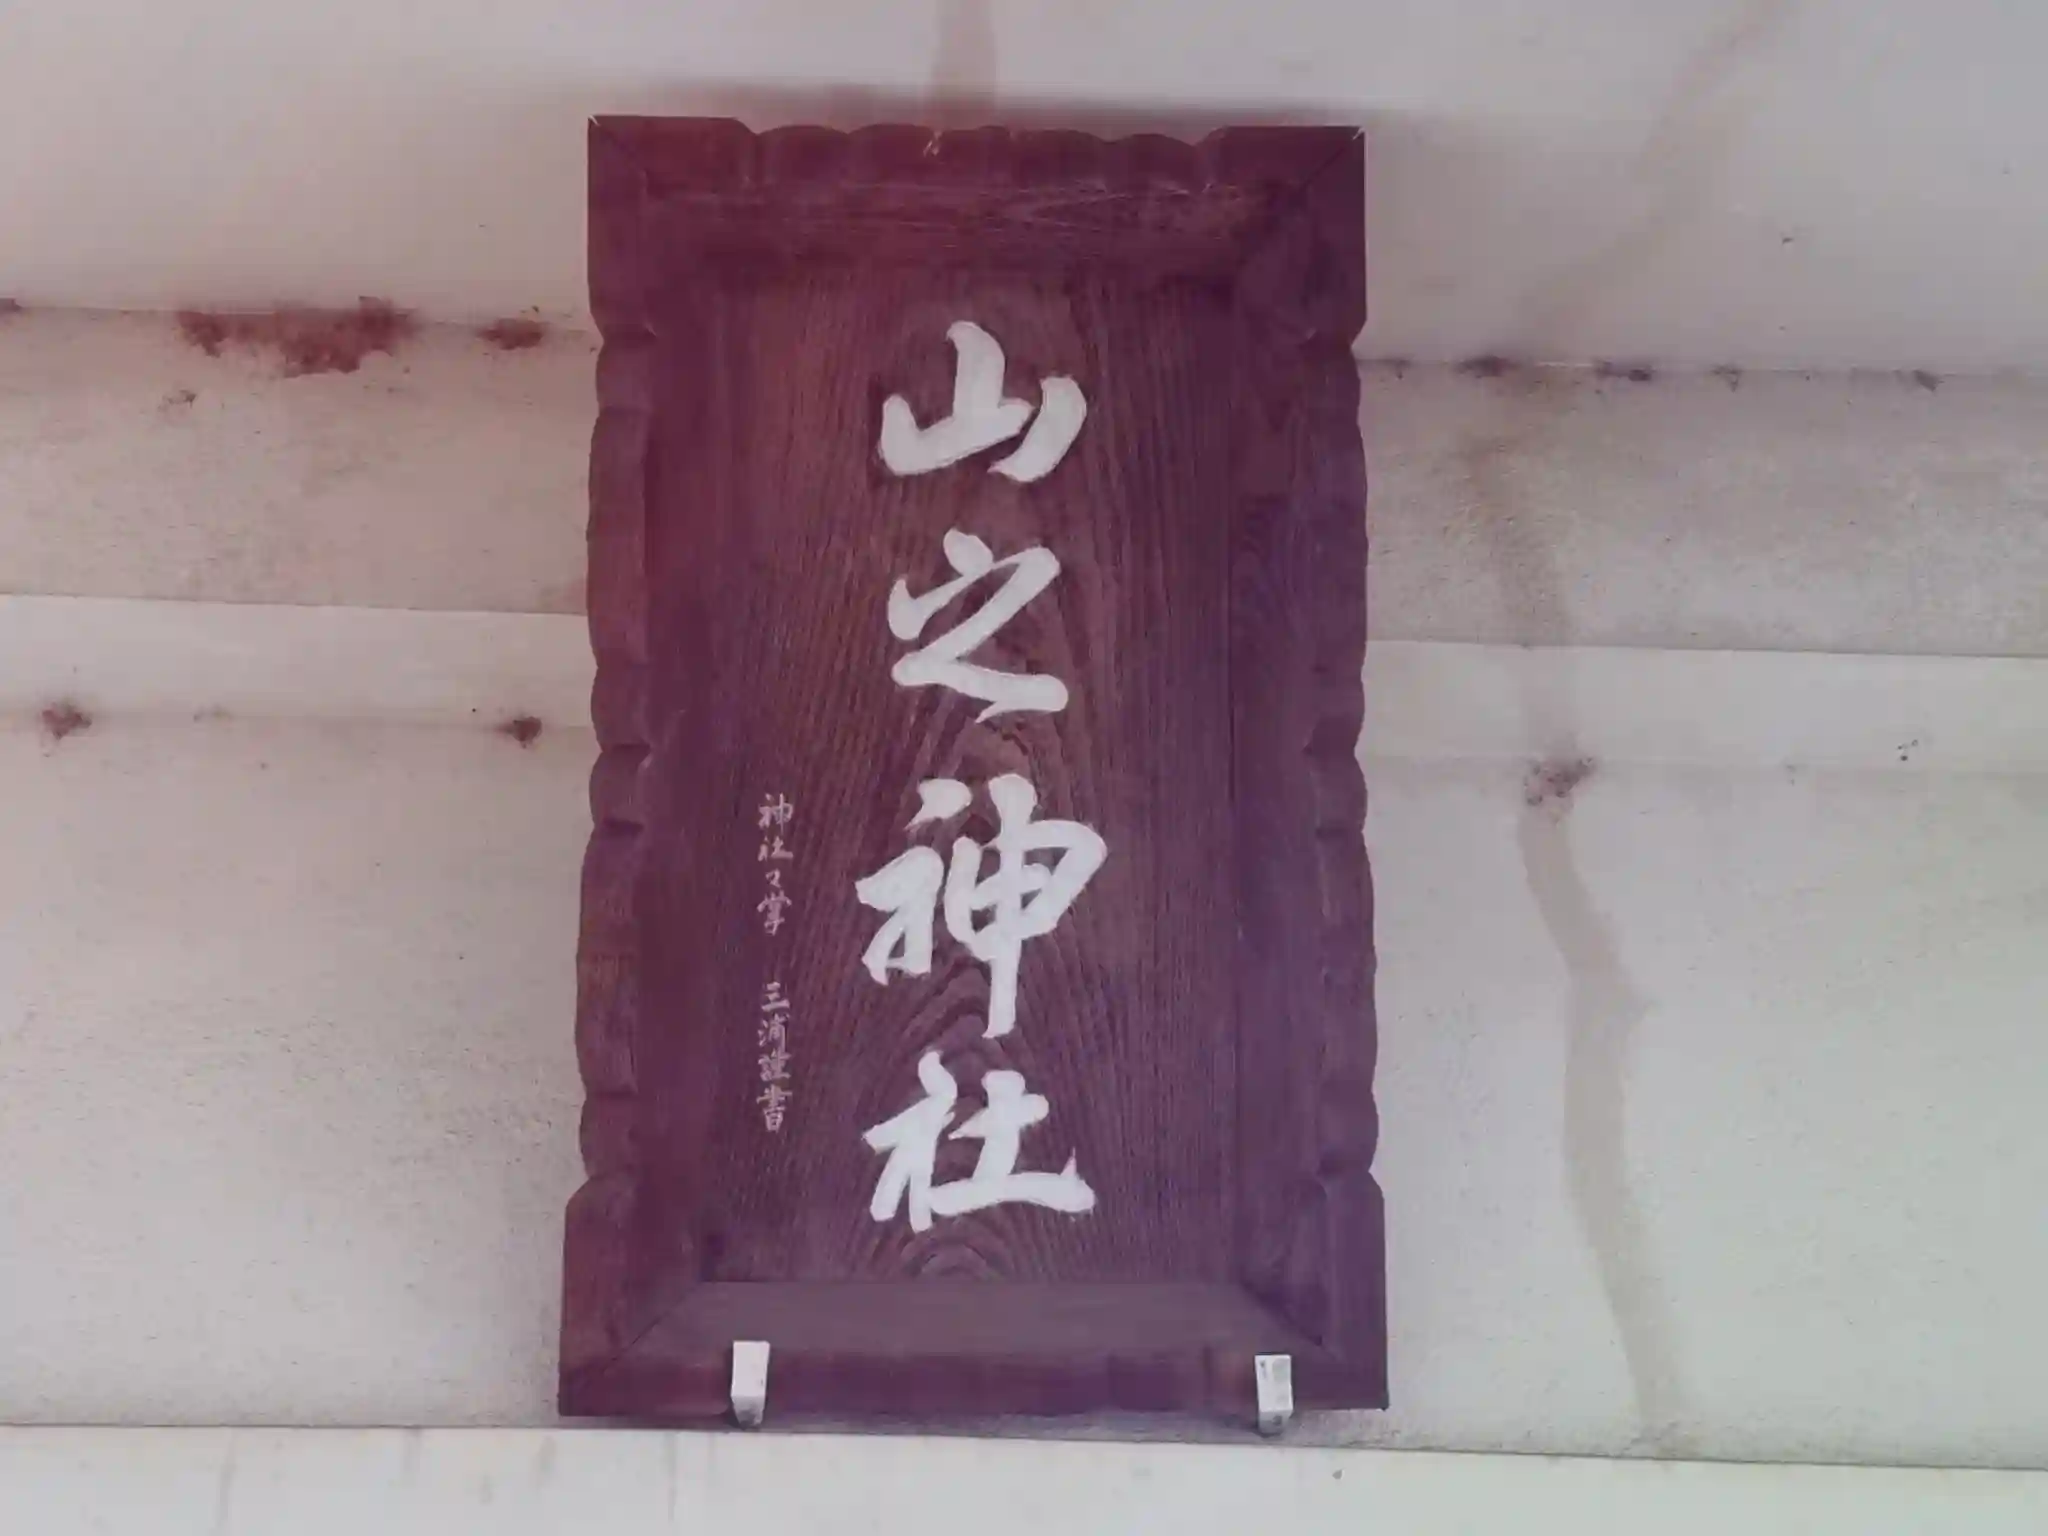 山之神社
神社々掌 三浦謹書